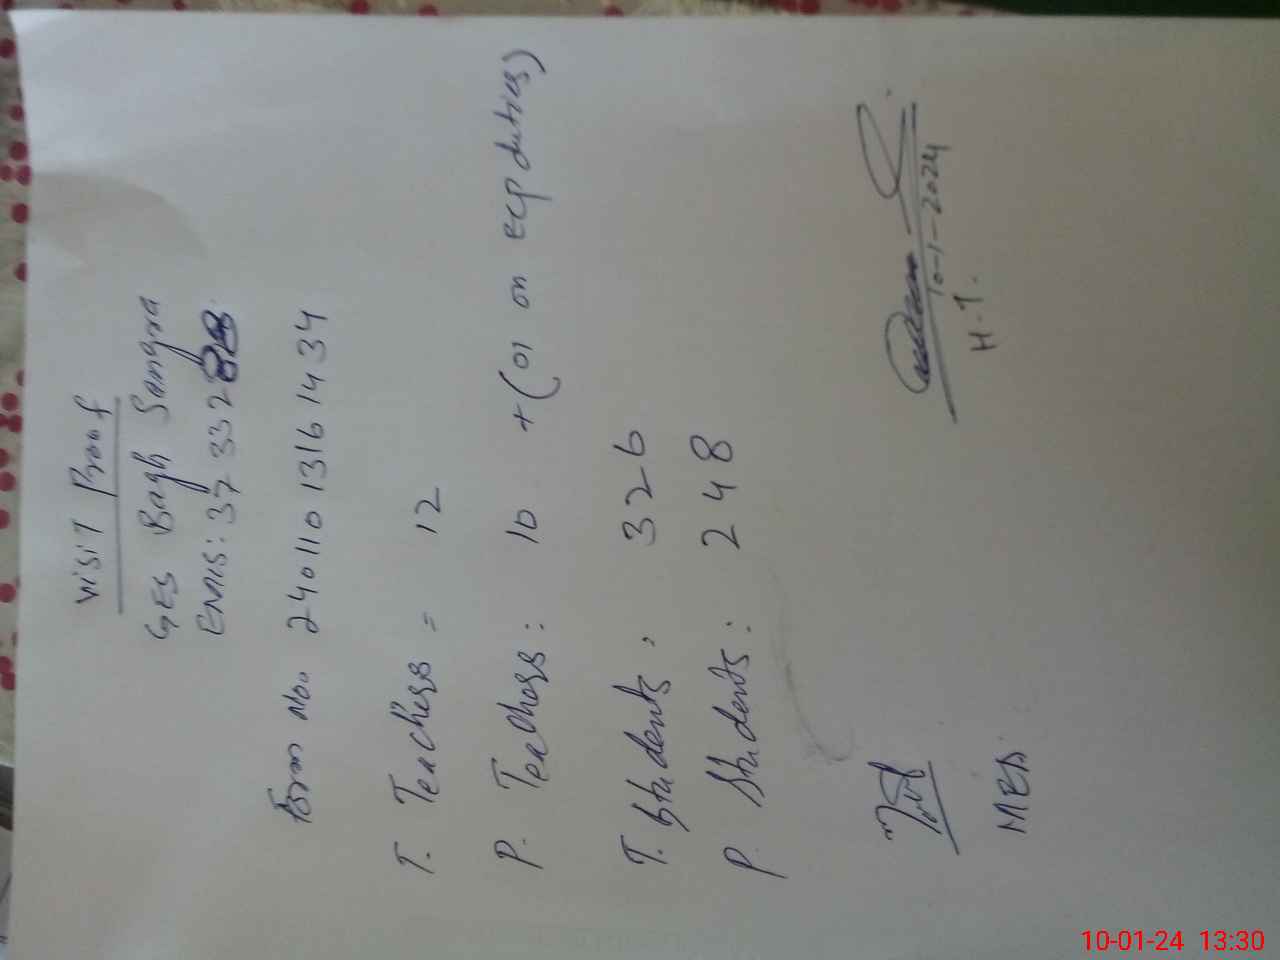 Visit Proof
GES Bagh Sangra
EMIS: 37332
Form No. 24011013161434
T. Teachers = 12
P. Teachers: 10 +(01 on ECP duties)
T. Students: 326
P. Students: 248
10-1-2024
H.T.
MEA
10-01-24 13:30